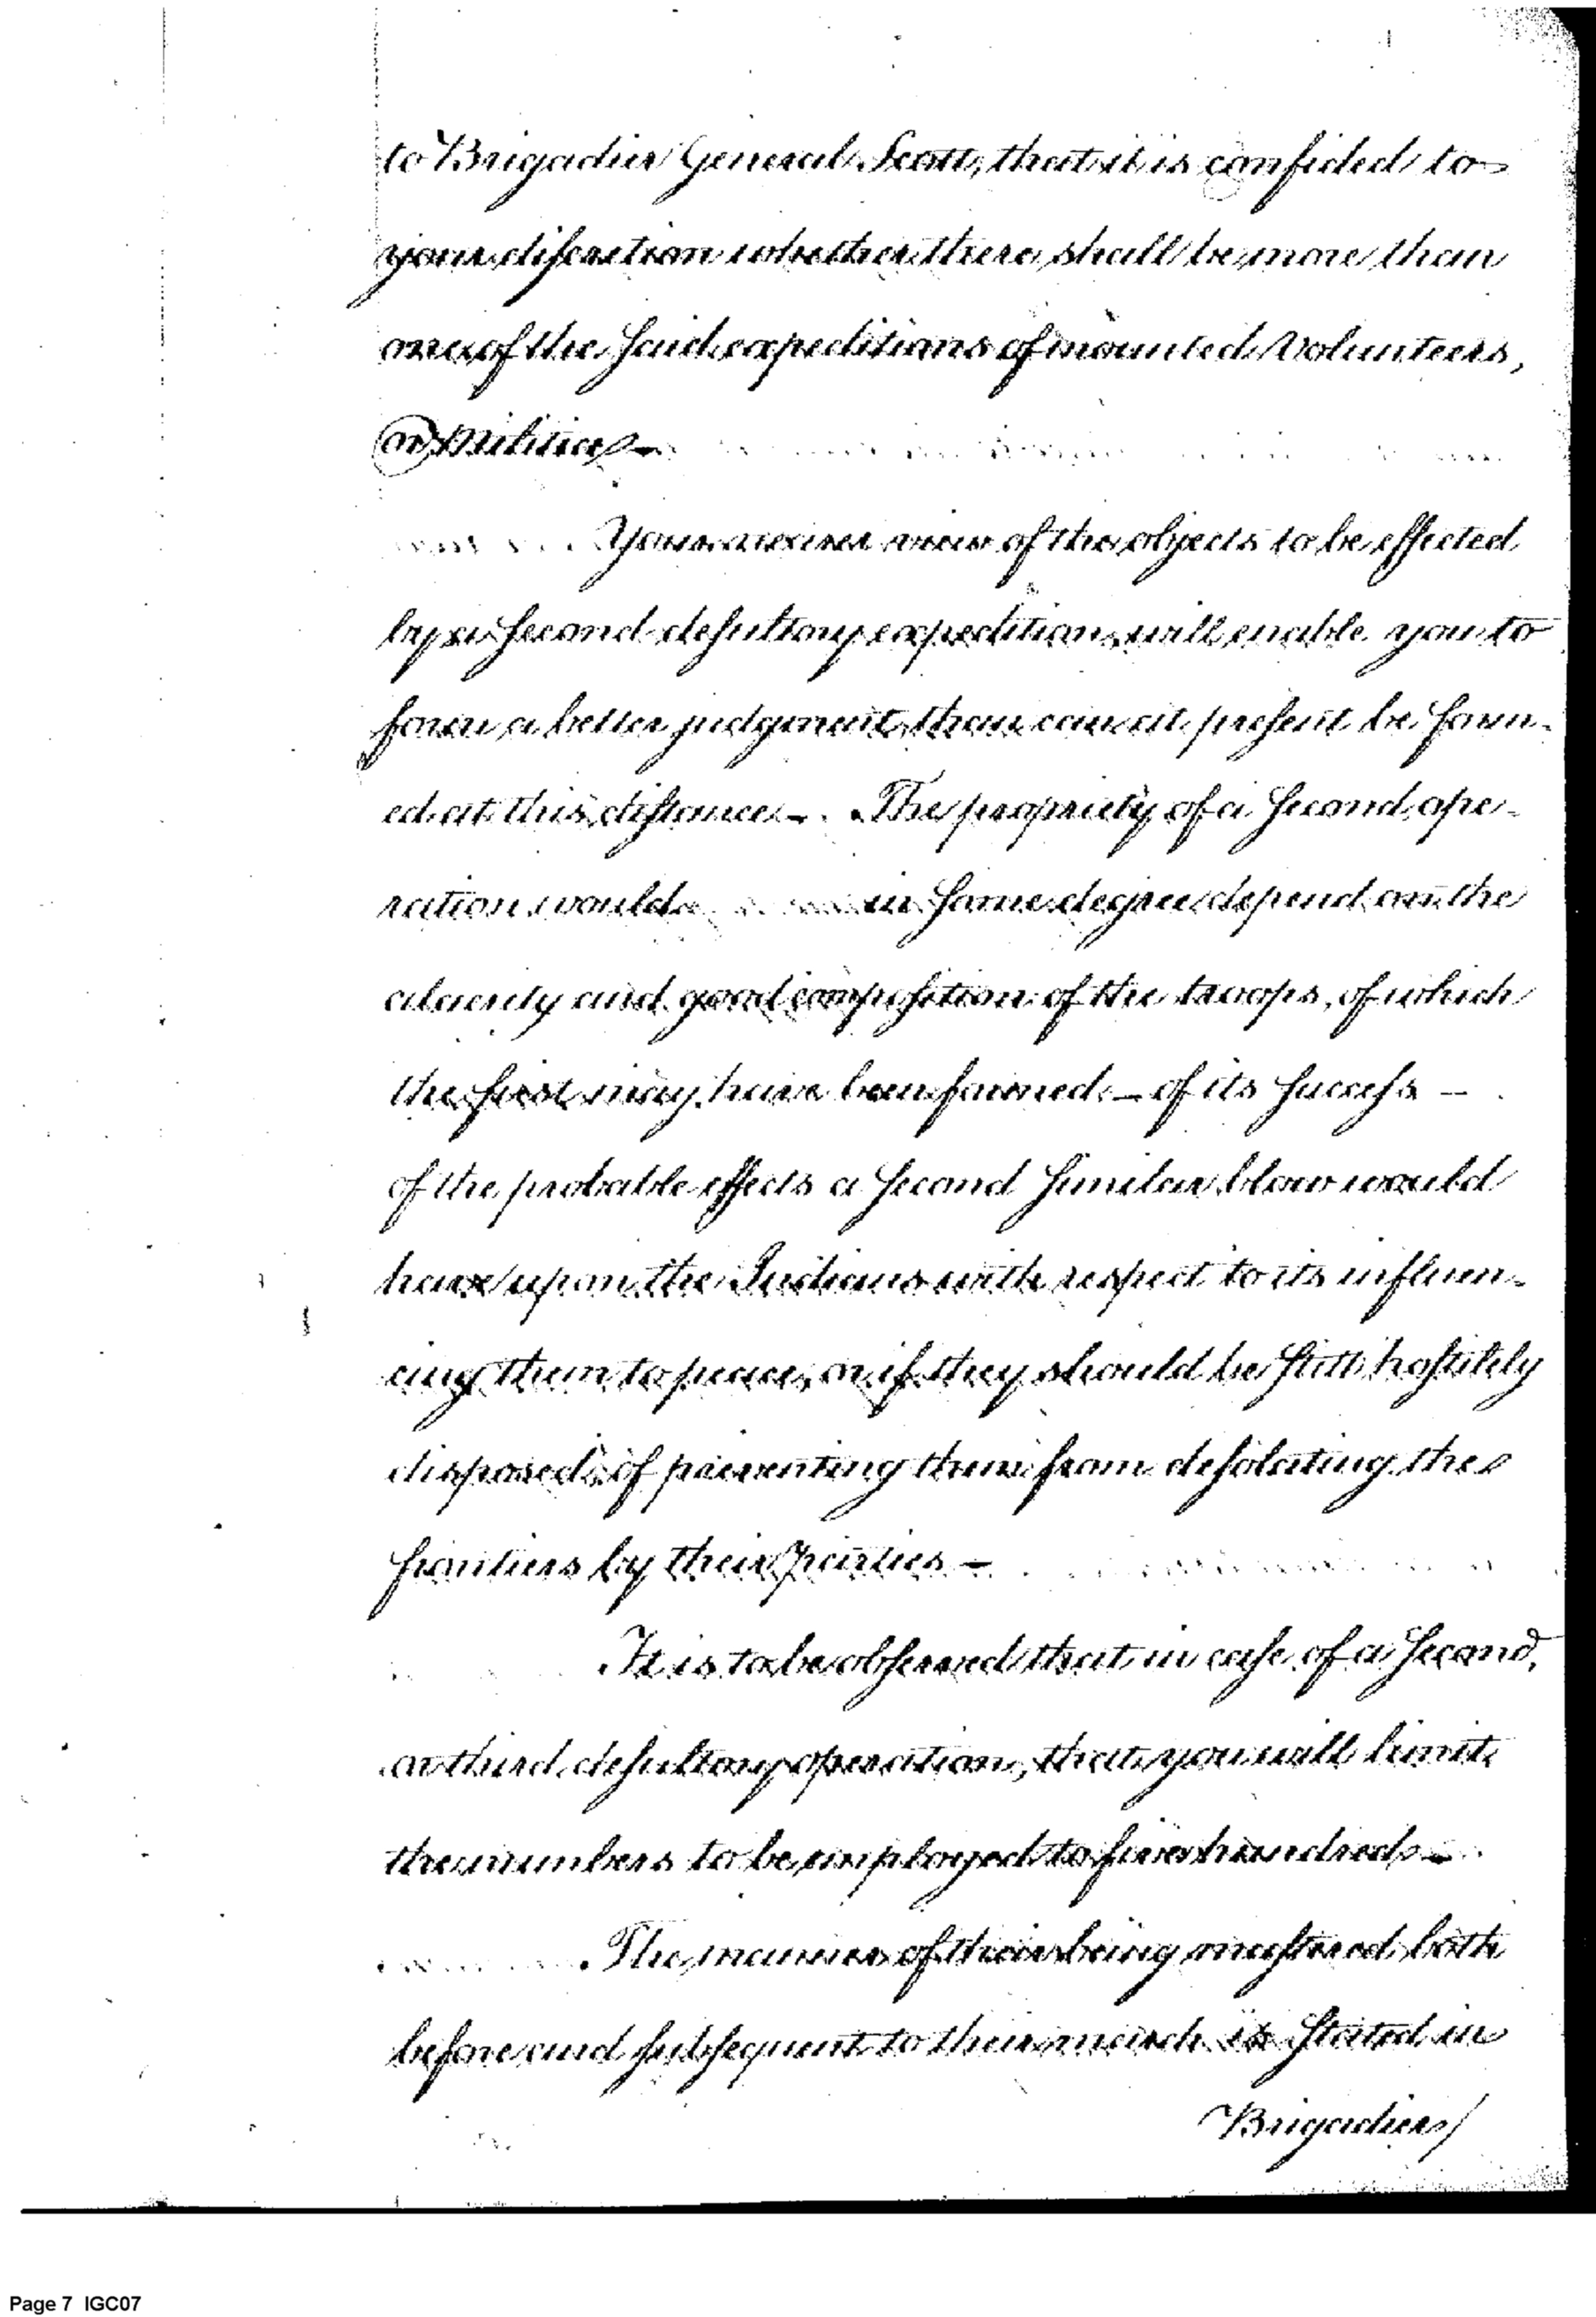 to Brigadier General Scott, that it is confided to
your discretion whether there shall be more than
one of the said expeditions of mounted Volunteers,
or Militia —
Your nearer view of the objects to be effected
by a second desultory expedition, will enable you to
form a better judgment, than can at present be form-
ed at this distance —. The propriety of a second ope-
ration would in some degree depend on the
alacrity and good composition of the troops, of which
the first may have been formed — of its success —
of the probable effects a second similar blow would
have upon the Indians with respect to its influen-
cing them to peace, or if they should be still hostilely
disposed, of preventing them from desolating the
frontiers by their parties —
It is to be observed that in case of a second,
or third desultory operation, that you will limit
the numbers to be employed to five hundred —
The manner of their being mustered both
before and subsequent to their march is stated in
Brigadier/
Page 7 IGC07